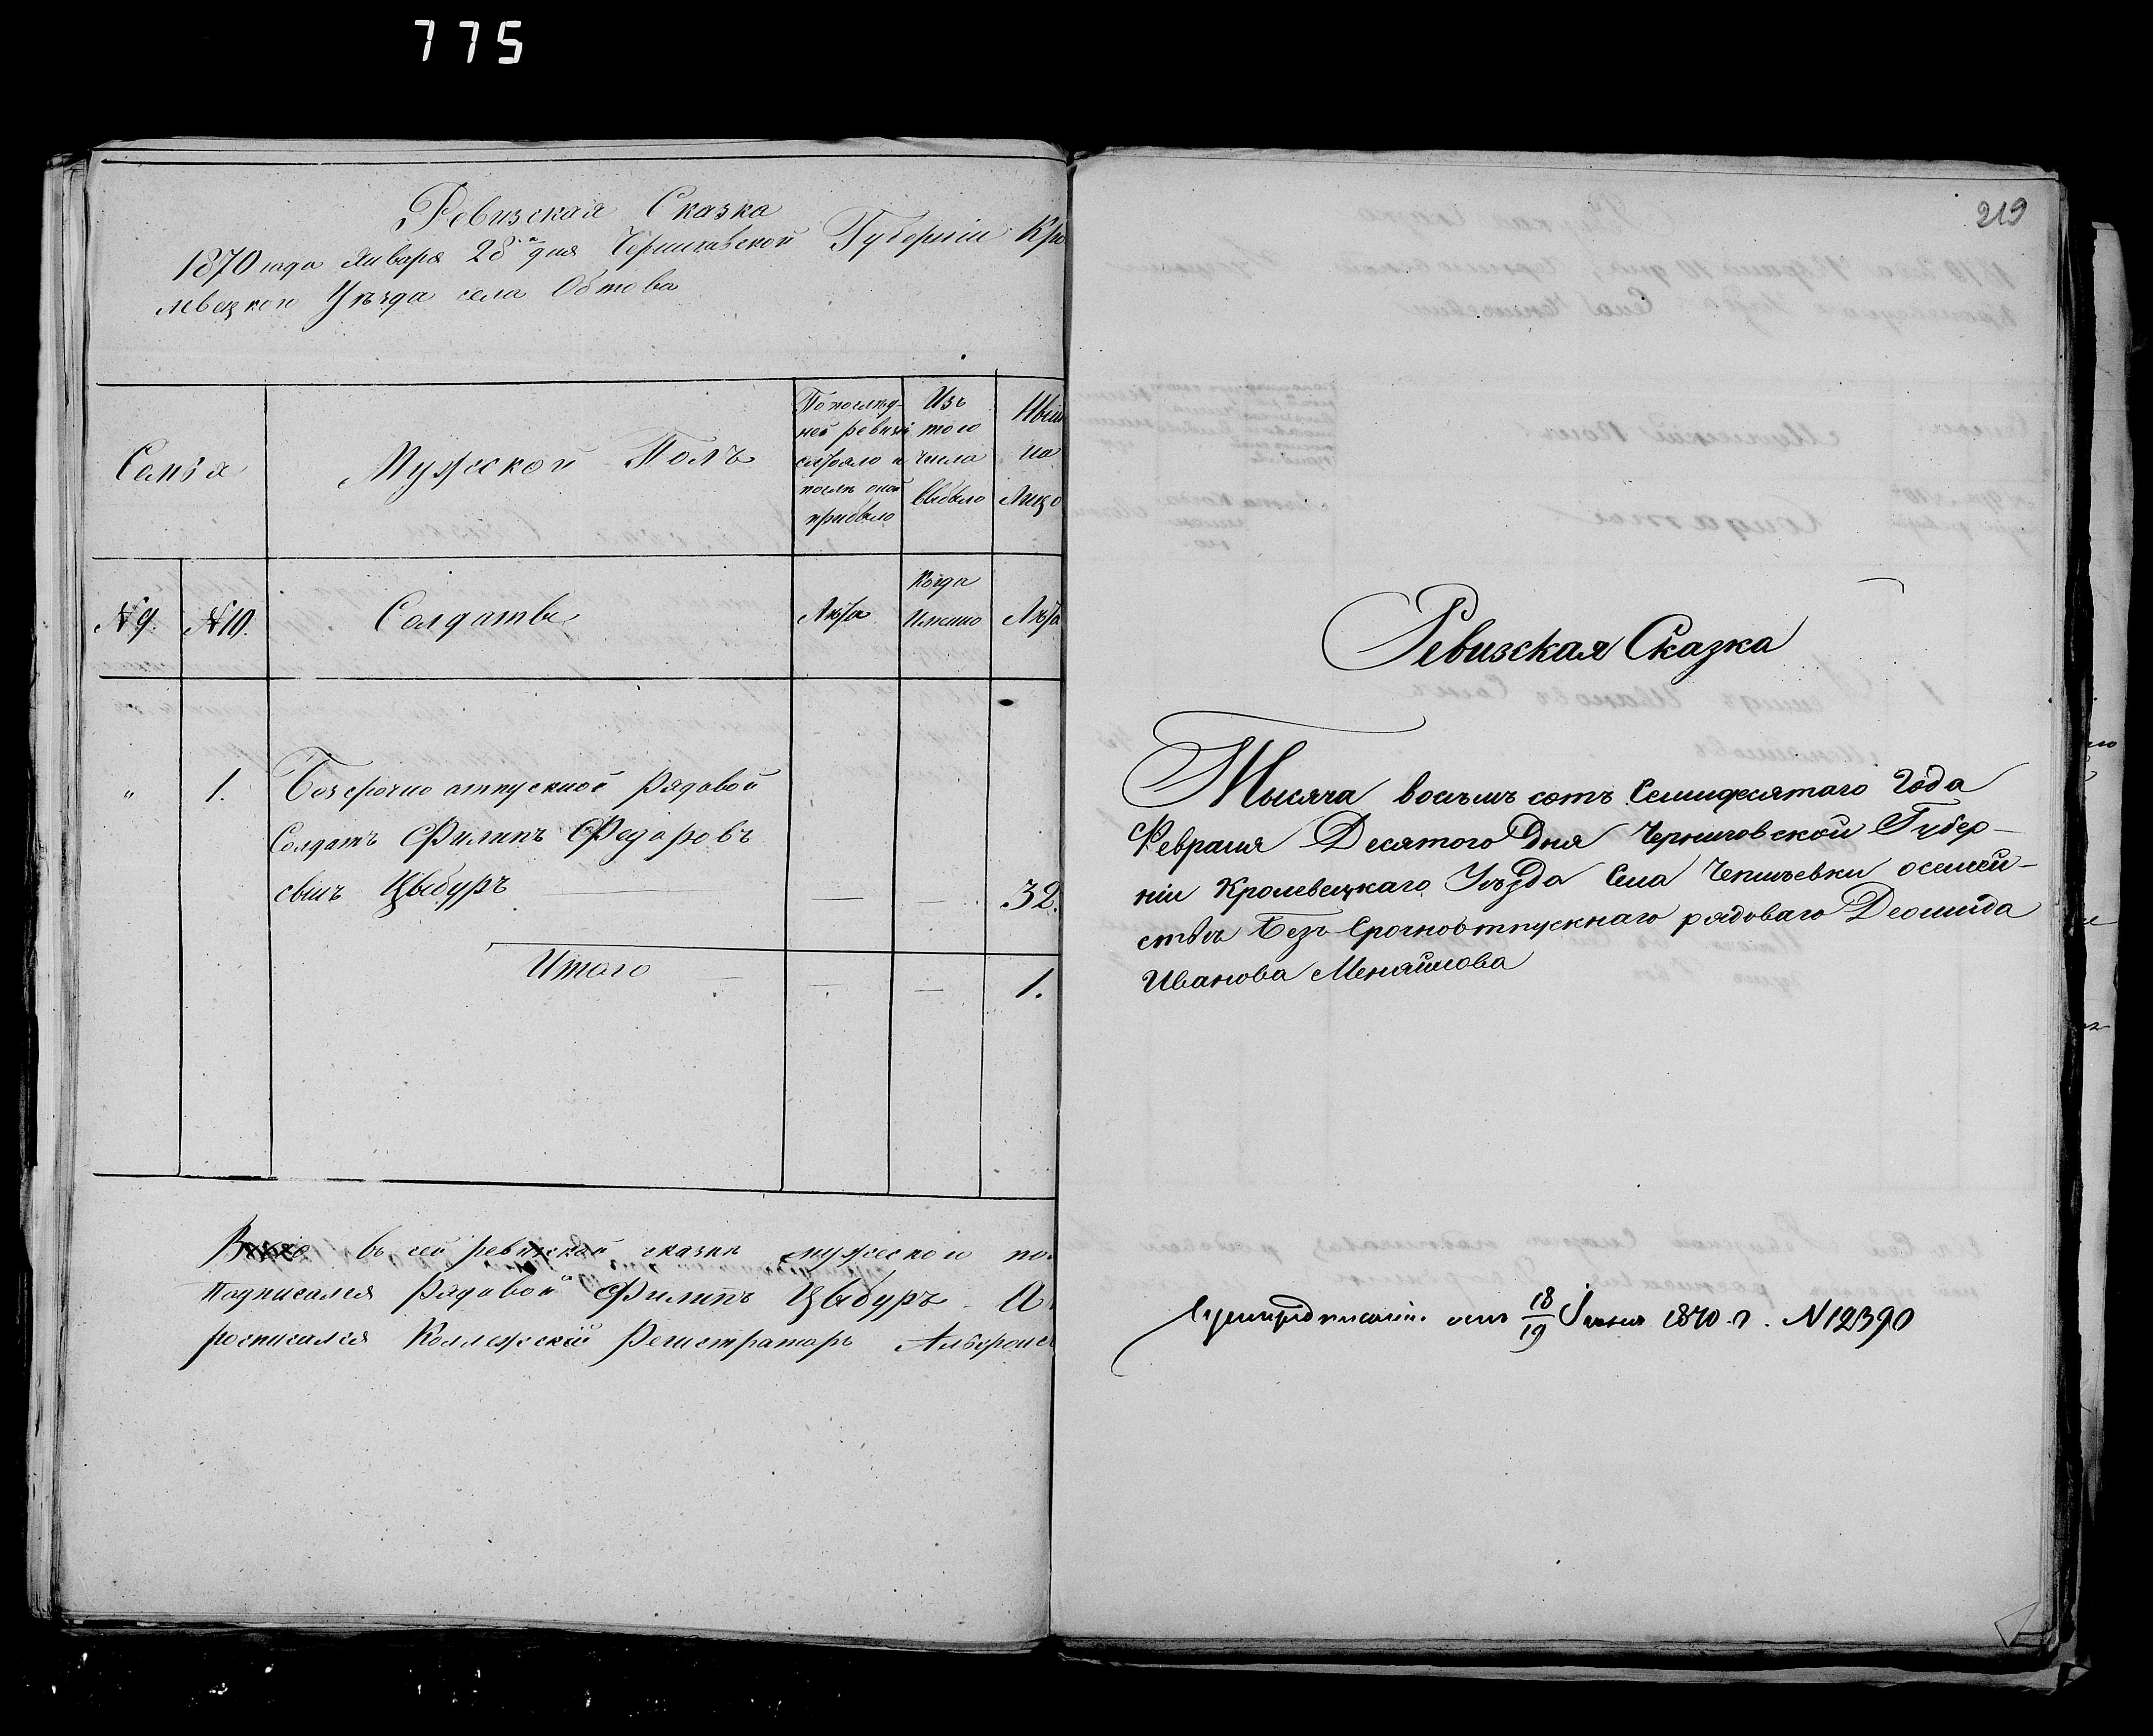 775
Ревизская Сказка
1870 года Января 28 дня Черниговской Губернiи Кро
левецкого Уѣзда села Обтова
Семья
Мужской Полъ
По послѣд-
ней ревизiи
состояло и
послѣ оной
прибыло
Изъ
того
числа
выбыло
на
Лицо
№ 9.
№ 10.
Солдаты
Лѣта
Когда
Именно
Лѣта
" 1. Безсрочно отпускной Рядовой
Солдатъ Филипъ Федоровъ
сынъ Цыбуръ — — 32.
Итого — — — 1.
въ сей ревизской сказкѣ мужеского по
Подписался Рядовой Филипъ Цыбуръ А
росписался Коллежскiй Регистраторъ
219
Ревизская Сказка
Тысяча восѣмъ сотъ Семидесятаго Года
Февраля Десятого Дня Черниговской Губер-
нiи Кролевецкаго Уѣзда Села Чепиѣевки осемей-
ствѣ Безъ Срочноотпускнаго рядоваго Деомида
Иванова Меняйлова
18/19 1870 г. N 12390